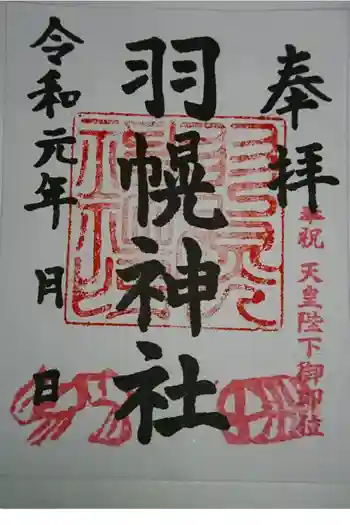 奉拝
奉祝 天皇陛下御即位
羽幌神社
令和元年 月 日